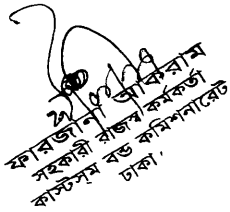 ফারজানা আকরাম
সহকারী রাজস্ব কর্মকর্তা
কাস্টমস বন্ড কমিশনারেট
ঢাকা।